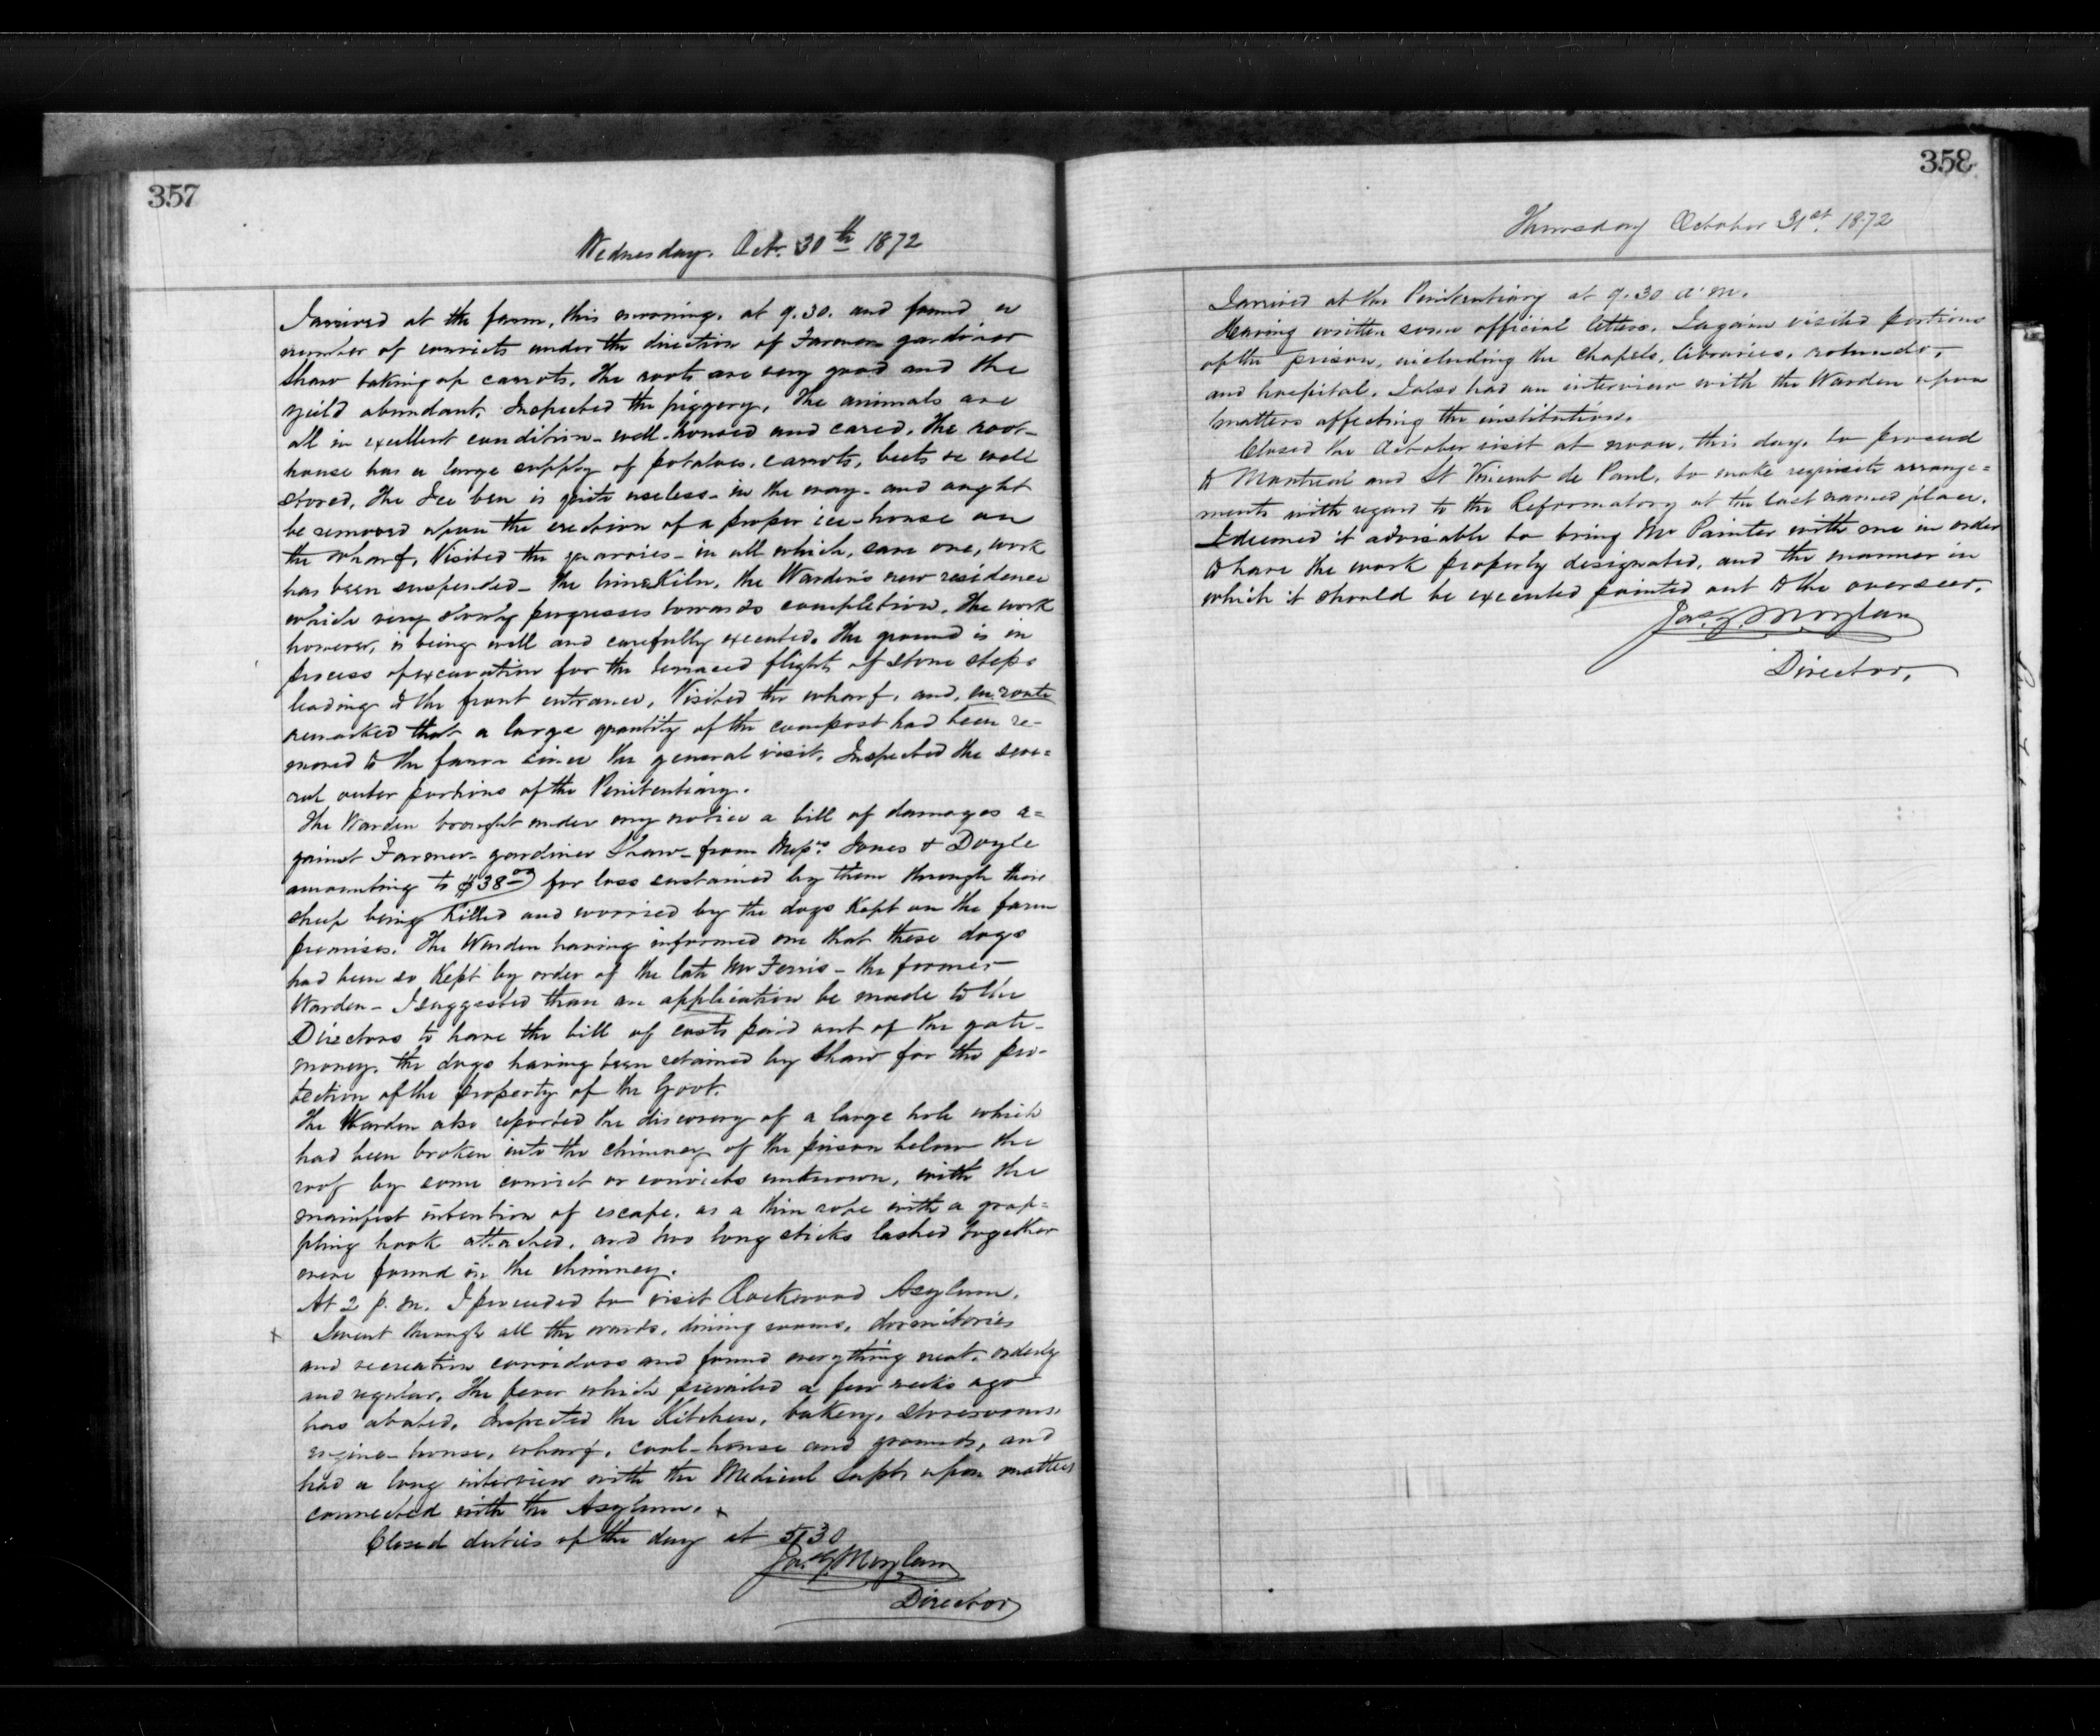 357
Wednesday. Oct. 30th 1872
I arrived at the farm, this morning, at 9.30. and found a
number of convicts under the direction of Farmer gardiner
Shaw taking up carrots. The roots are very good and the
yeild abundant. Inspected the piggery. The animals are
all in excellent condition - well-housed and cared. The root-
house has a large supply of potatoes, carrots, beets &c well
stored. The Ice is quite useless - in the way - and ought
be removed upon the erection of a proper ice-house on
the wharf. Visited the quarries - in all which, save one, work
has been suspended - the lime Kiln, the Warden's new residence
which very slowly progresses towards completion. The work
however, is being well and carefully executed. The ground is in
process of excavation for the terraced flight of stone steps
leading to the front entrance. Visited the wharf, and, en route
remarked that a large quantity of the compost had been re-
moved to the farm since the general visit. Inspected the seve=
ral outer portions of the Penitentiary.
The Warden brought under my notice a bill of damages a=
gainst Farmer-gardiner Shaw - from Messrs Jones & Doyle
amounting to $38.00 for loss sustained by them through their
sheep being Killed and worried by the dogs Kept on the farm
premises. The Warden having informed me that these dogs
had been so Kept by order of the late Mr Ferris - the former
Warden - I suggested than an application be made to the
Directors to have the bill of costs paid out of the gate-
money, the dogs having been retained by Shaw for the pro-
tection of the property of the Govt.
The Warden also reported the discovery of a large hole which
had been broken into the chimney of the prison below the
roof by some convict or convicts unknown, with the
manifest intention of escape, as a thin rope with a grap=
pling hook attached, and two long sticks lashed together
were found in the chimney.
At 2 p.m. I proceeded to visit Rockwood Asylum.
x I went through all the wards, dining rooms, dormitories
and recreation corridors and found everything neat, orderly
and regular. The fever which prevailed a few weeks ago
has abated. Inspected the Kitchen, bakery, storerooms,
engine-house, wharf, coal-house and grounds, and
had a long interview with the Medical Supt. upon matters
connected with the Asylum. x
Closed duties of the day at 5.30
Jas. G. Moylan
Director
358
Thursday October 31st. 1872
I arrived at the Penitentiary at 9.30 a.m.
Having written some official letters, I again visited portions
of the prison, including the chapels, libraries, rotundo,
and hospital. I also had an interview with the Warden upon
matters affecting the institution.
Closed the October visit at noon, this day, to proceed
to Montreal and St Vincent de Paul, to make requisite arrange=
ments with regard to the Reformatory at the last named place.
I deemed it advisable to bring Mr Painter with me in order
to have the work properly designated, and the manner in
which it should be executed pointed out to the overseer.
Jas. G. Moylan
Director.